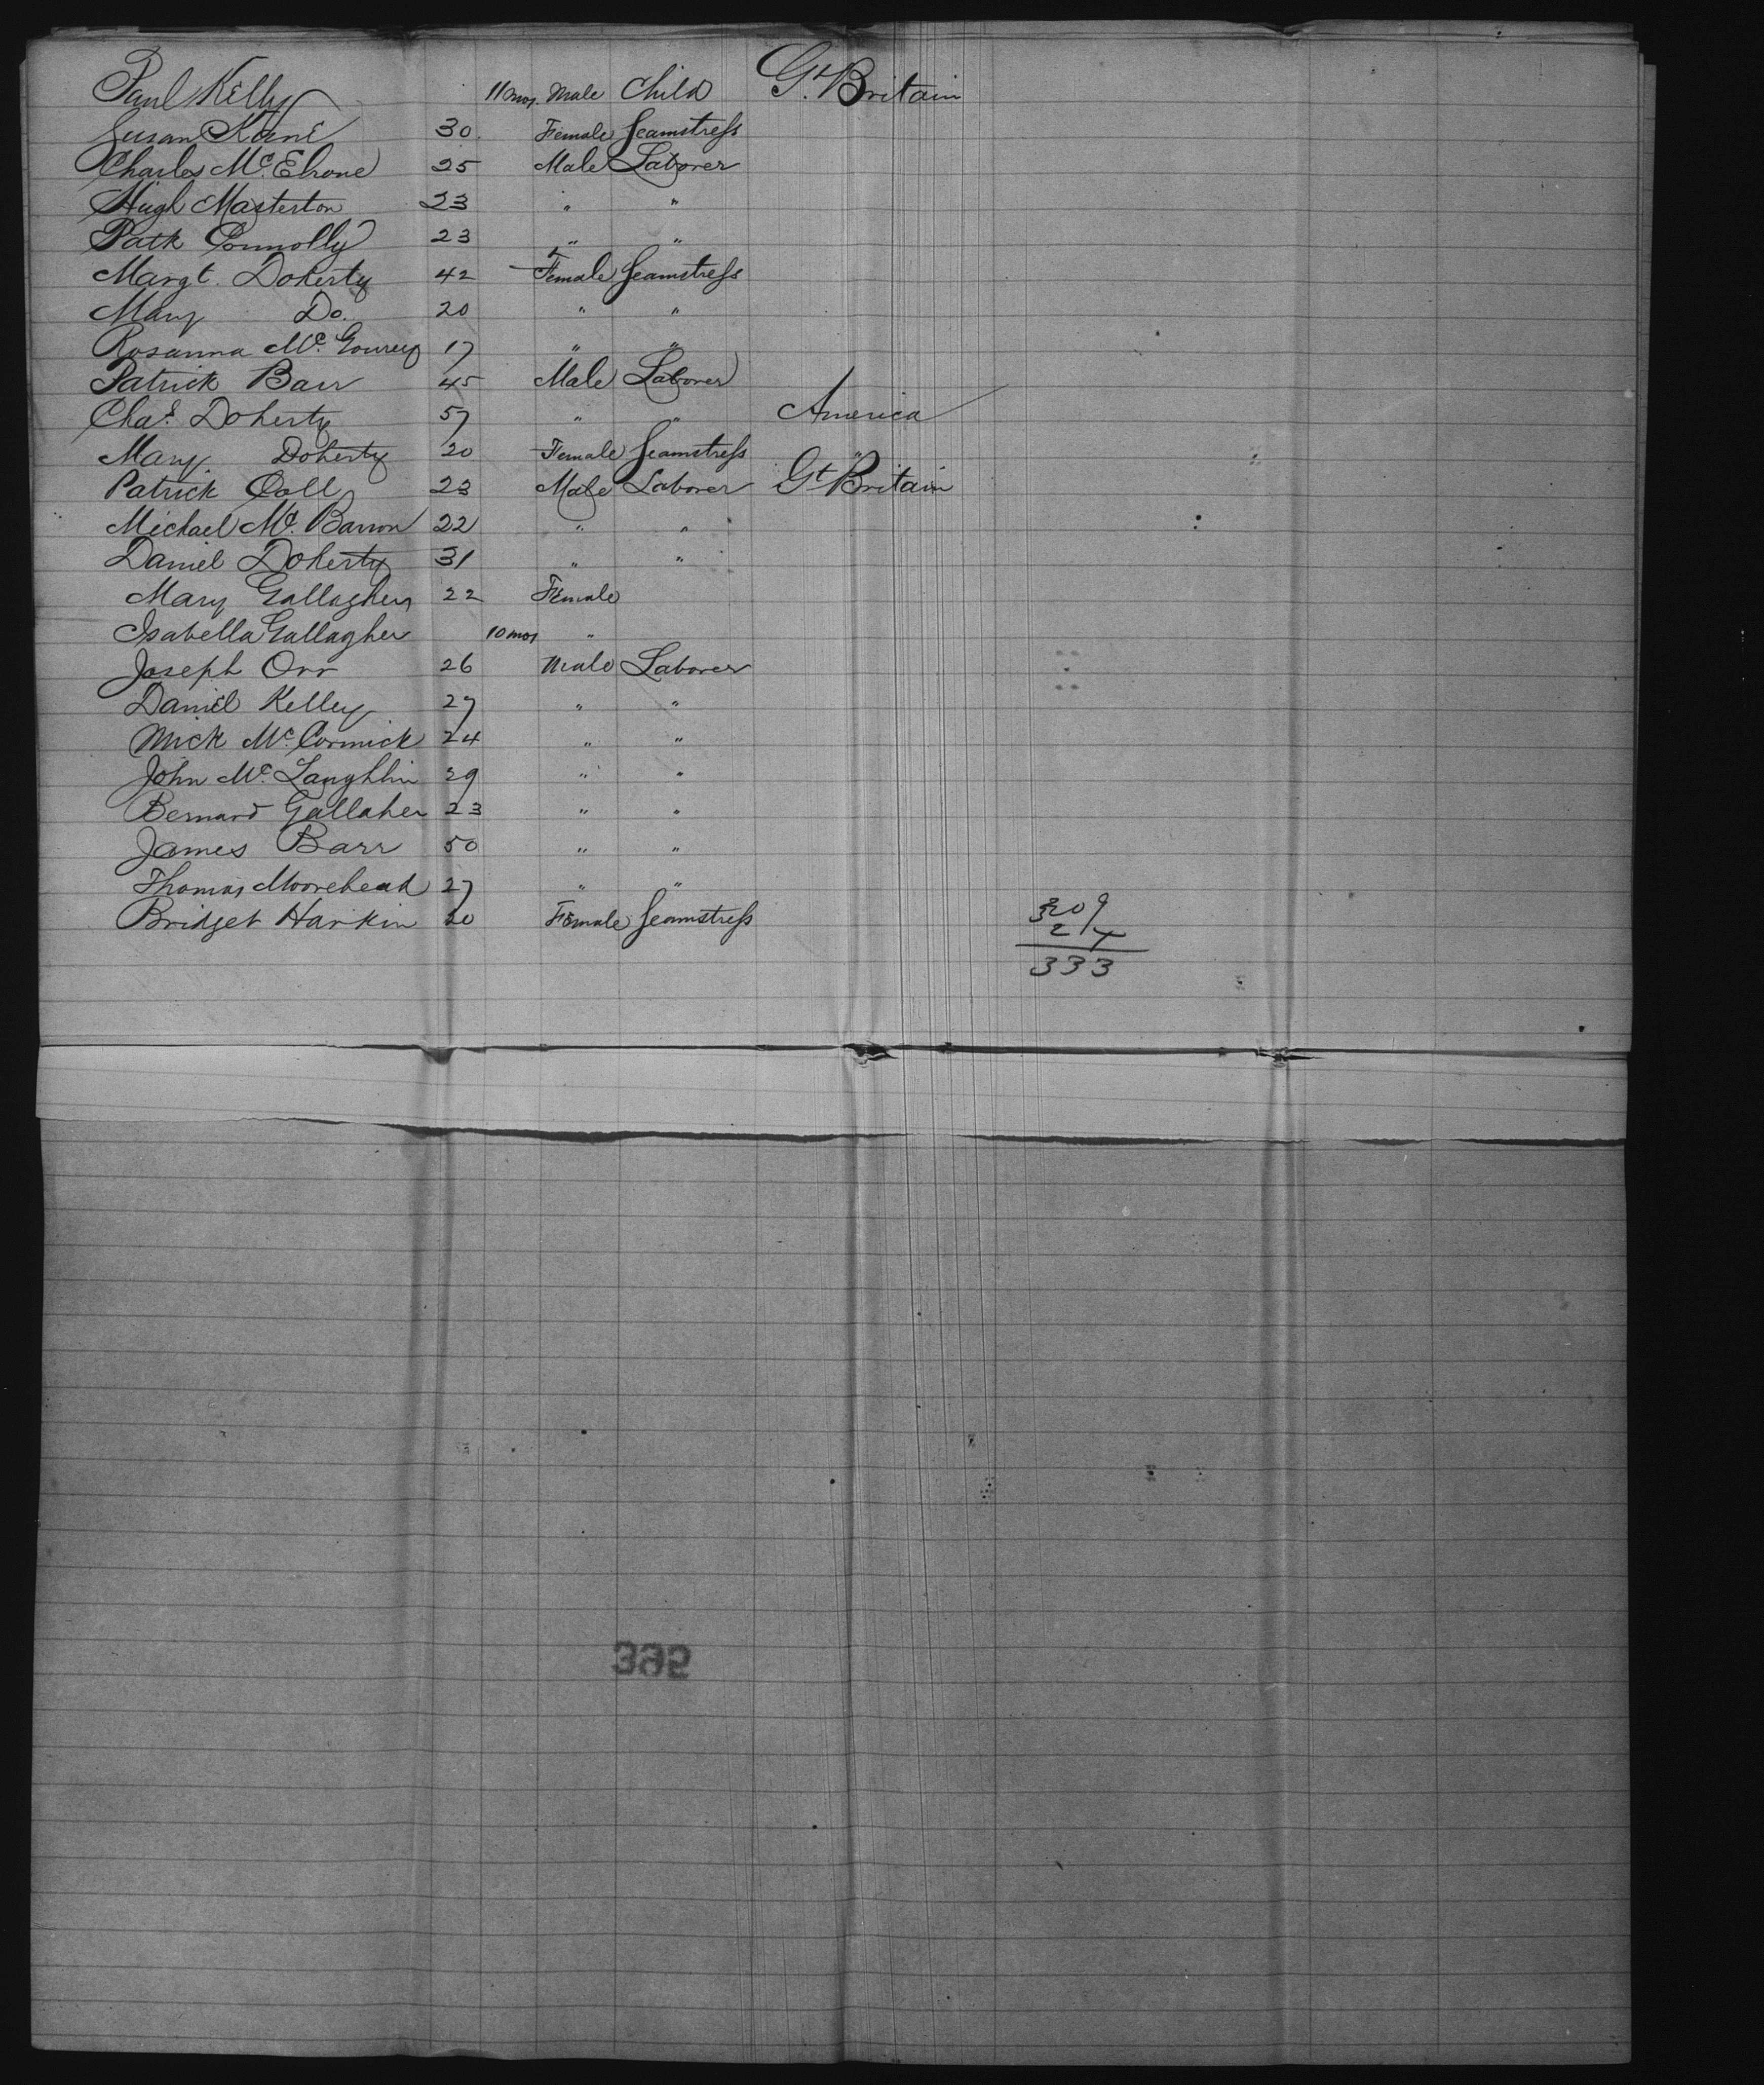 Paul Kelly 11 mos. Male Child Gt. Britain
Susan Kane 30 Female Seamstress
Charles Mc. Elrone 25 Male Laborer
Hugh Masterton 23 " "
Patk Connolly 23 " "
Margt. Doherty 42 Female Seamstress
Mary Do. 20 " "
Rosanna Mc. Gourey 17 " "
Patrick Barr 45 Male Laborer
Chas. Doherty 57 " " America
Mary Doherty 20 Female Seamstress "
Patrick Coll 23 Male Laborer Gt Britain
Michael Mc. Barron 22 " "
Daniel Doherty 31 " "
Mary Gallagher 22 Female
Isabella Gallagher 10 mos "
Joseph Orr 26 Male Laborer
Daniel Kelley 27 " "
Mick Mc. Cormick 24 " "
John Mc. Laughlin 29 " "
Bernard Gallaher 23 " "
James Barr 50 " "
Thomas Moorehead 27 " "
Bridget Harkin 20 Female Seamstress
309
24
333
395